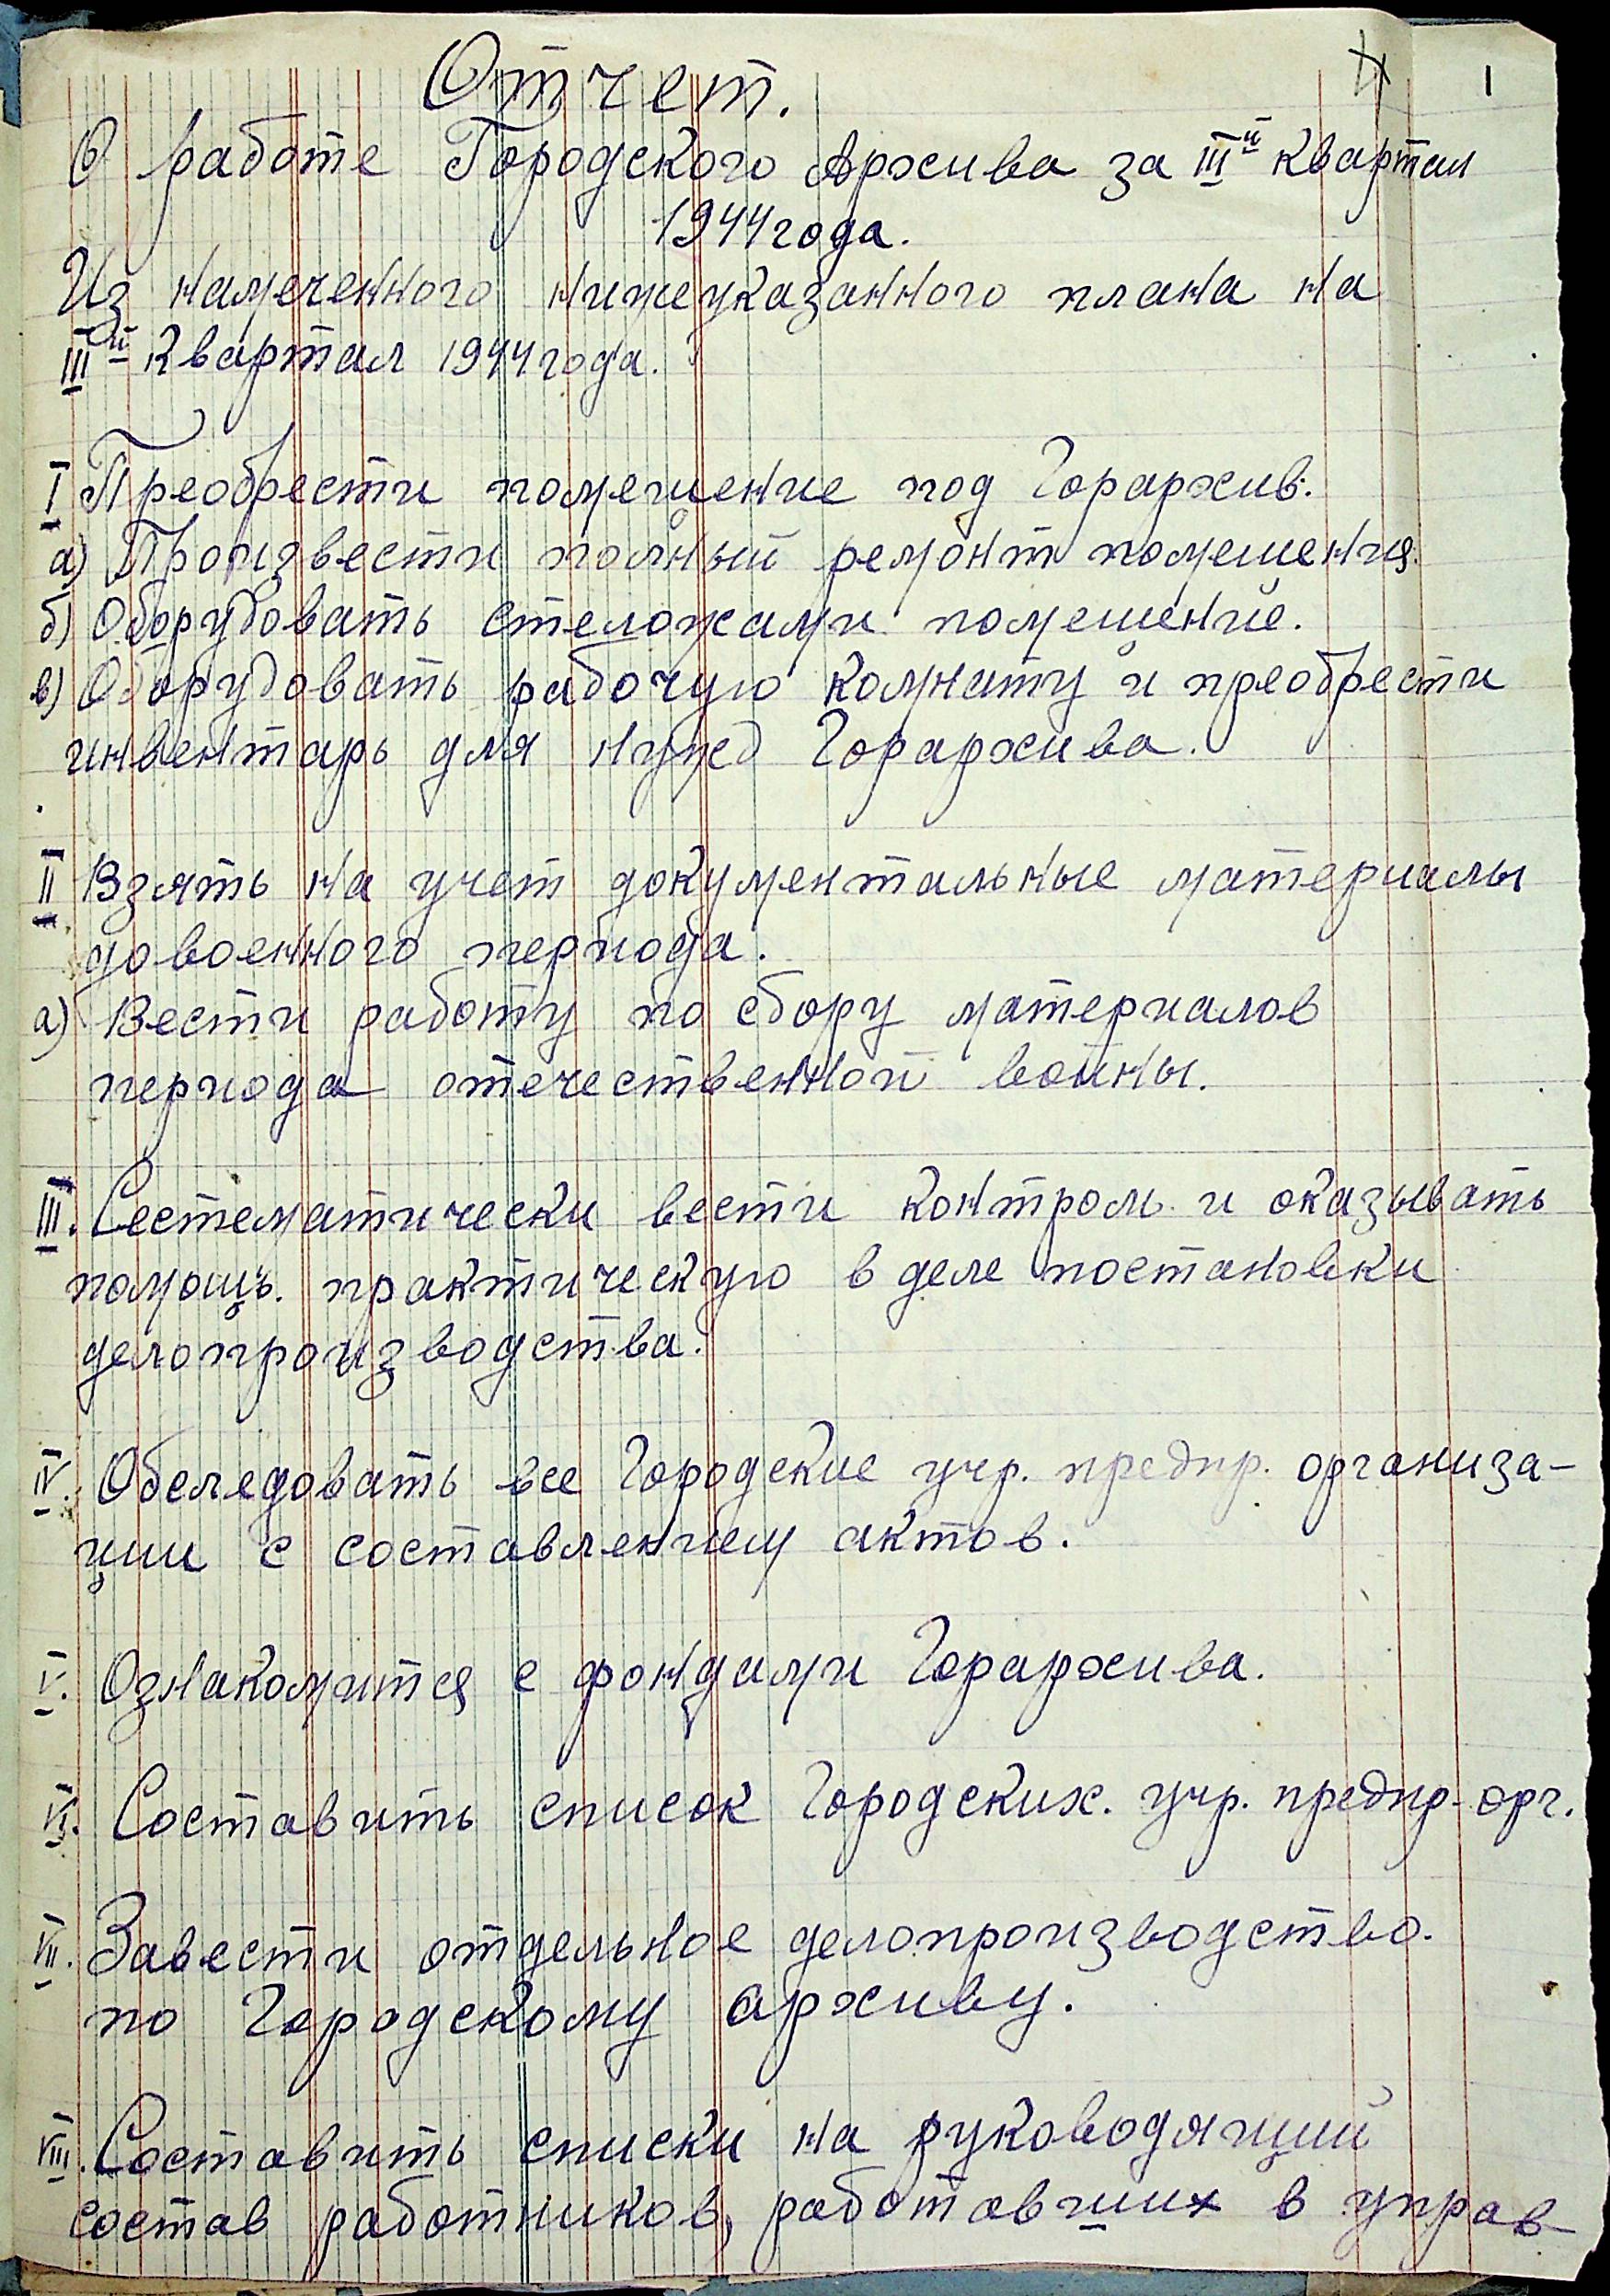 1
Отчет.
О работе Городского Архива за III й квартал
1944 года.
Из намеченного нижеуказанного плана на
III й квартал 1944 года.
I Преобрести помещение под Горархив.
а) Произвести полный ремонт помещения.
б) Оборудовать стеложами помещение.
в) Оборудовать рабочую комнату и преобрести
инвентарь для нужд Горархива.
II Взять на учет документальные материалы
довоенного периода.
а) Вести работу по сбору материалов
периода отечественной войны.
III. Сестематически вести контроль и оказывать
помощь практическую в деле постановки
делопроизводства.
IV. Обследовать все Городские учр. предпр. организа-
ции с составлением актов.
V. Ознакомится с фондами Горархива.
VI. Составить список Городских. учр. предпр. орг.
VII. Завести отдельное делопроизводство.
по Городскому архиву.
VIII. Составить списки на руководящий
состав работников, работавших в управ